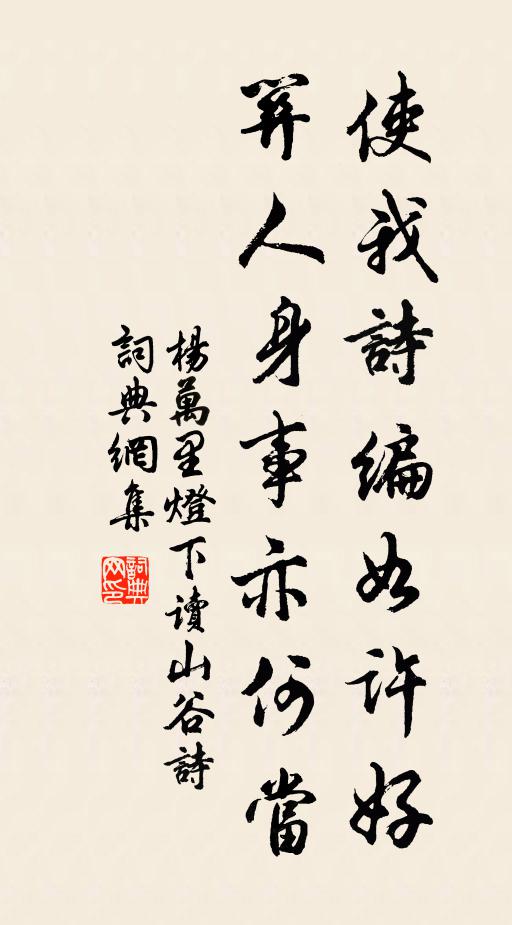 使我詩編如許好
關人身事亦何當
楊萬里燈下讀山谷詩
詞典網集
詞典网印